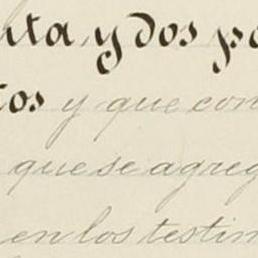 nta, y dos po
tos y que con
que se agreg
en los testim